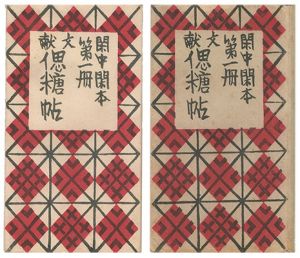 閑中閑本
第一冊
文献偲糖帖
閑中閑本
第一冊
文献偲糖帖